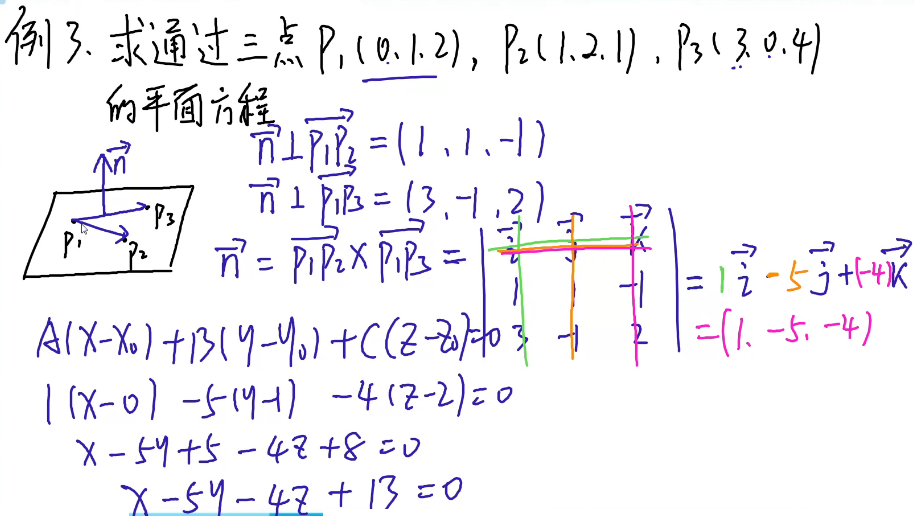 例3. 求通过三点 P₁(0.1.2), P₂(1.2.1), P₃(3.0.4)
的平面方程
n⃗⊥P₁P₂⃗=(1,1,-1)
n⃗⊥P₁P₃⃗=(3,-1,2)
n⃗
P₁ P₂ P₃
n⃗ = P₁P₂⃗ × P₁P₃⃗ = | i⃗ j⃗ k⃗ |
| 1 1 -1 | = 1i⃗ -5j⃗ +(-4)k⃗
| 3 -1 2 | =(1, -5, -4)
A(x-x₀)+B(y-y₀)+C(z-z₀)=0
1(x-0) -5(y-1) -4(z-2)=0
x-5y+5-4z+8=0
x-5y-4z+13=0